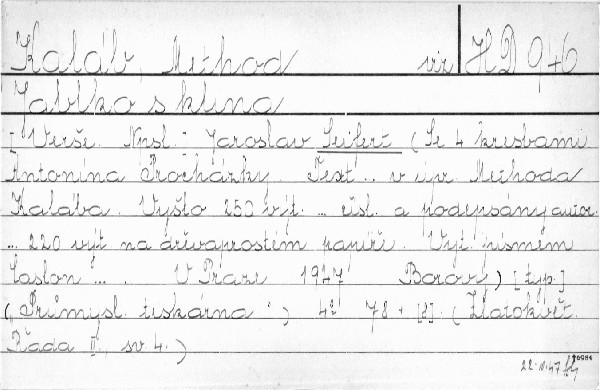 Kaláb, Method viz HD 946
Jablko s klína
[Verše. Npsl.] Jaroslav Seifert (Se 4 kresbami
Antonína Procházky. Text ... v úpr. Methoda
Kalába. Vyšlo 250 výt. ... čísl. a podepsány autor.
... 220 výt na dřevaprostém papíře. Vyt. písmem
Caslon ... . V Praze 1947 Borový) [typ.]
("Průmysl. tiskárna") 4° 78 + [8]. (Zlatokvět.
Řada II, sv. 4.)
22.11.47